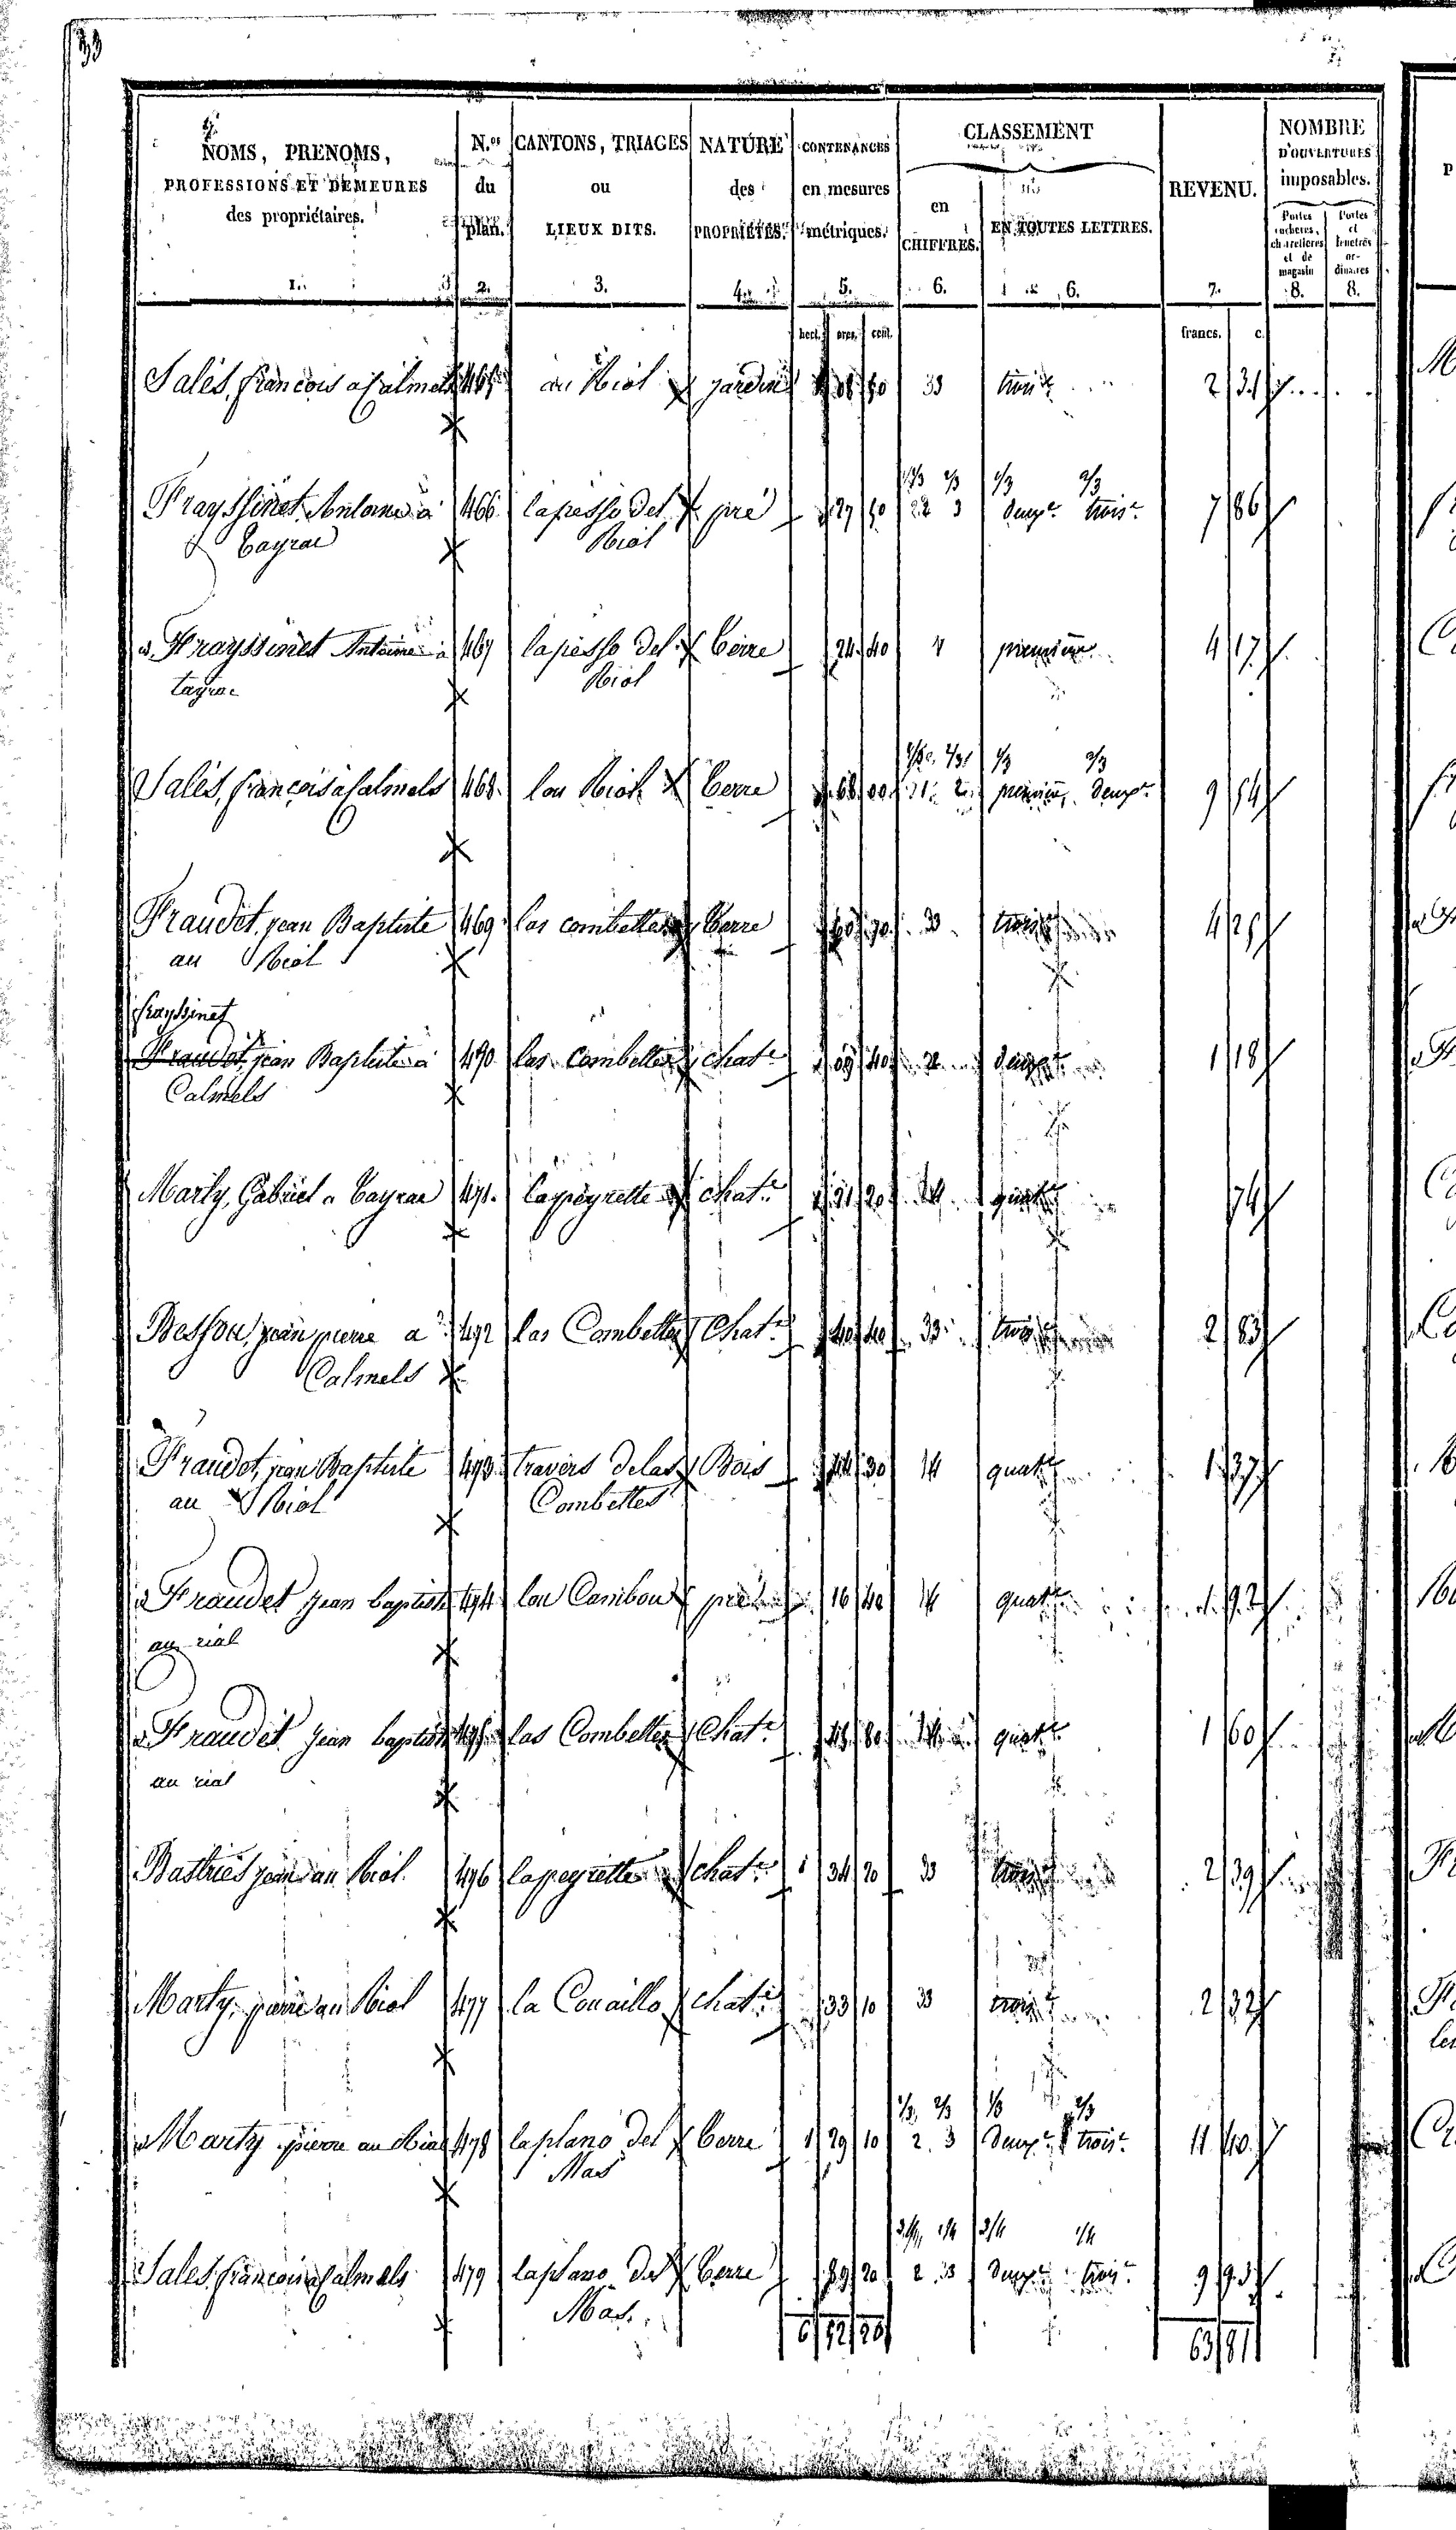 33
NOMS, PRENOMS,
PROFESSIONS ET DEMEURES
des propriétaires.
1.
N.os
du
plan.
2.
CANTONS, TRIAGES
ou
LIEUX DITS.
3.
NATURE
des
PROPRIÉTÉS.
4.
CONTENANCES
en mesures
métriques.
5.
CLASSEMENT
en
CHIFFRES.
6.
EN TOUTES LETTRES.
6.
REVENU.
7.
NOMBRE
D'OUVERTURES
imposables.
Portes
cocheres,
charetieres
et de
magasin
8.
Portes
et
fenetres
or-
dinaires
8.
hect. ares. cent. francs. c.
Salès, francois a Calmels 465 au Riol jardin 33 trois.e 2 31
1/3 2/3 1/3 2/3
Frayssinet, Antoine à 466 lapesso del pré 27 50 2 3 deux.e trois.e 7 86
Tayrac Riol
id. Frayssinet Antoine à 467 lapesso del terre 24 40 1 première 4 17
tayrac Riol
1/3 2/3 1/3 2/3
Salès, françois a Calmels 468 lou Riol terre 68 00 1 2 première, deux.e 9 54
Fraudet, jean Baptiste 469 las combettes terre 60 70 33 trois.e 4 25
au Riol
frayssinet
Fraudet, jean Baptiste à 470 las Combettes chat.e 09 40 2 deux.e 1 18
Calmels
Marty, Gabriel a Tayrac 471 lapeyrette chat.e 21 20 4 quat.e 74
Bessou, jean pierre a 472 las Combettes Chat.e 40 40 33 trois.e 2 83
Calmels
Fraudet, jean Baptiste 473 travers de las Bois 44 30 4 quat.e 1 37
au Riol Combettes
id. Fraudet jean baptiste 474 lou Cambou pré 16 40 4 quat.e 1 92
au rial
id. Fraudet jean baptiste 475 las Combettes Chat.e 80 4 quat.e 1 60
au rial
Bastriès jean au Riol 476 lapeyrette chat.e 34 20 33 trois.e 2 39
Marty, pierre au Riol 477 la Conaillo chat.e 33 10 33 trois.e 2 32
1/3, 2/3 1/3 2/3
id. Marty pierre au Rial 478 laplano del terre 1 29 10 2 3 deux.e trois.e 11 40
Mas
3/4, 1/4 3/4 1/4
Salès, francois a Calmels 479 laplano del terre 89 20 2 3 deux.e trois.e 9 93
Mas.
6 52 20 63 81